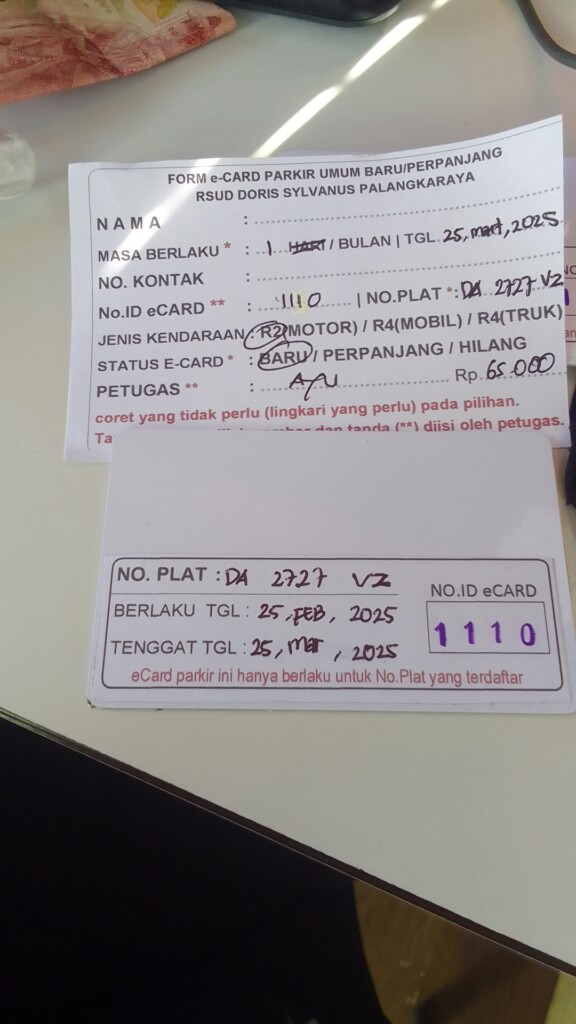 FORM e-CARD PARKIR UMUM BARU/PERPANJANG
RSUD DORIS SYLVANUS PALANGKARAYA
NAMA :
MASA BERLAKU * : 1 HARI / BULAN | TGL. 25, mart, 2025
NO. KONTAK :
No.ID eCARD ** : 1110 | NO.PLAT * : DA 2727 VZ
JENIS KENDARAAN : R2(MOTOR) / R4(MOBIL) / R4(TRUK)
STATUS E-CARD * : BARU / PERPANJANG / HILANG
PETUGAS ** : Rp. 65.000
coret yang tidak perlu (lingkari yang perlu) pada pilihan.
Ta dan tanda (**) diisi oleh petugas.
NO. PLAT : DA 2727 VZ
BERLAKU TGL : 25, FEB, 2025
NO.ID eCARD
1110
TENGGAT TGL : 25, Mar, 2025
eCard parkir ini hanya berlaku untuk No.Plat yang terdaftar